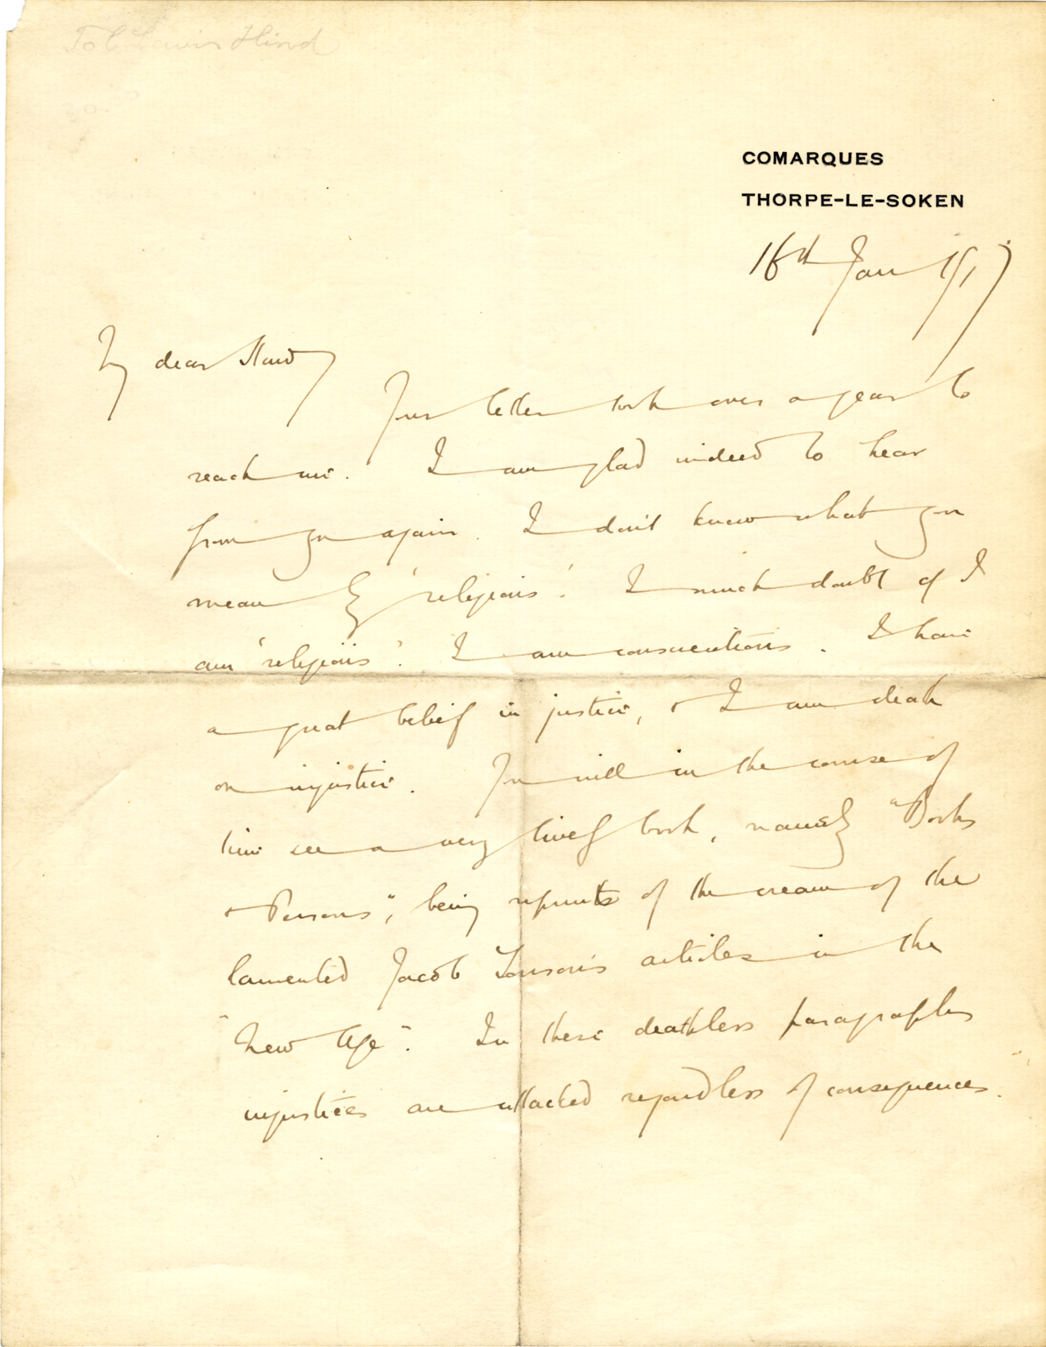 To C Lewis Hind
COMARQUES
THORPE-LE-SOKEN
16th Jan 1917
My dear Hind
Your letter took over a year to
reach me. I am glad indeed to hear
from you again. I don't know what you
mean by 'religious'. I much doubt if I
am 'religious'. I am conscientious. I have
a great belief in justice, & I am death
on injustice. You will in the course of
time see a very lively book, namely "Books
& Persons", being reprints of the cream of the
lamented Jacob Tonson's articles in the
"New Age". In these deathless paragraphs
injustices are attacked regardless of consequences.